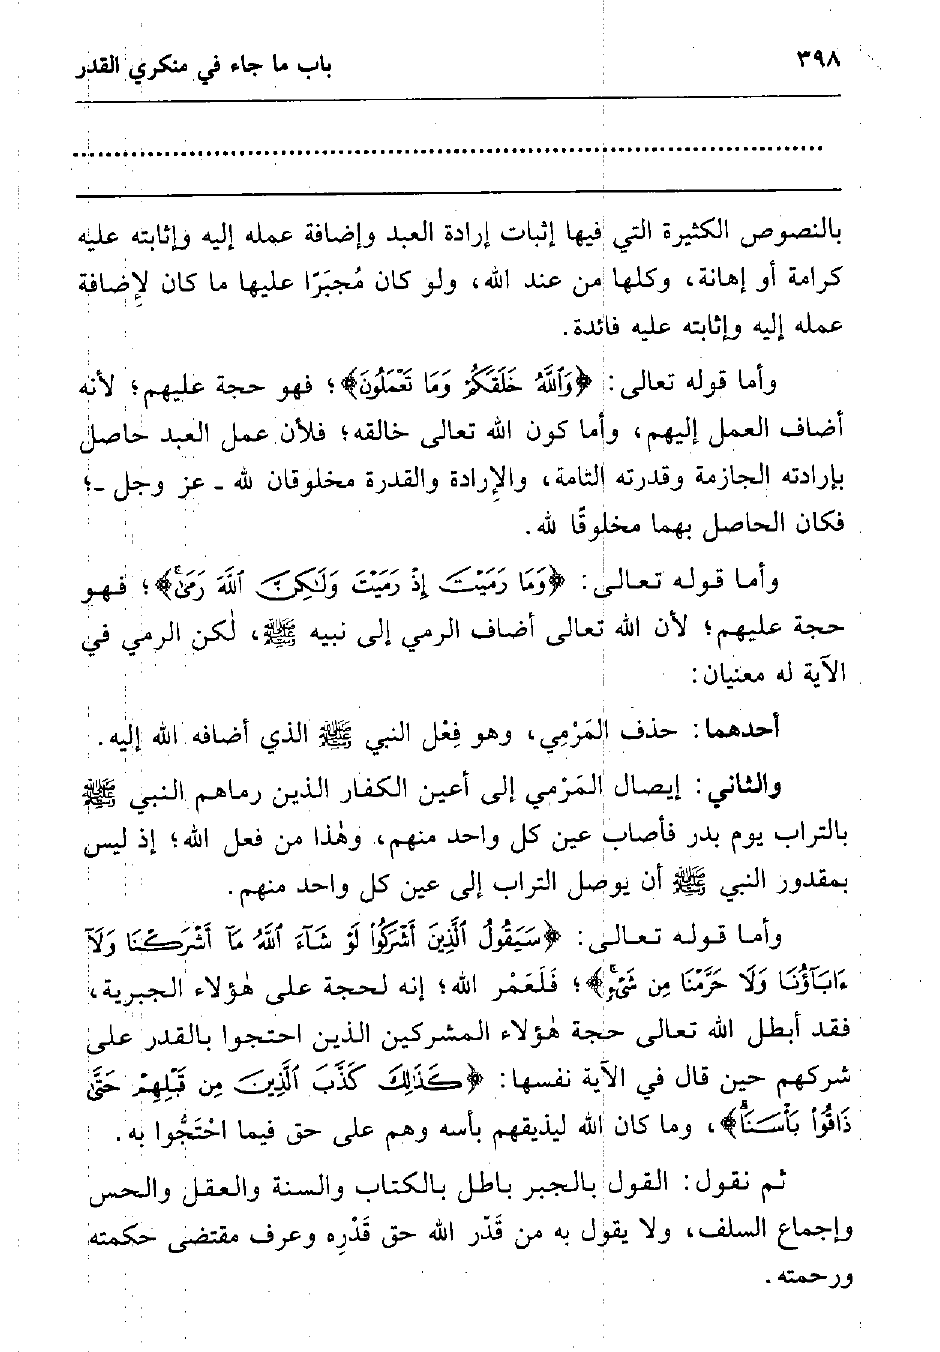 ٣٩٨
باب ما جاء في منكري القدر
بالنصوص الكثيرة التي فيها إثبات إرادة العبد وإضافة عمله إليه وإثابته عليه
كرامة أو إهانة، وكلها من عند الله، ولو كان مُجبَرًا عليها ما كان لإِضافة
عمله إليه وإثابته عليه فائدة.
وأما قوله تعالى: ﴿وَٱللَّهُ خَلَقَكُمْ وَمَا تَعْمَلُونَ﴾؛ فهو حجة عليهم؛ لأنه
أضاف العمل إليهم، وأما كون الله تعالى خالقه؛ فلأن عمل العبد حاصل
بإرادته الجازمة وقدرته التامة، والإِرادة والقدرة مخلوقان لله ـ عز وجل ـ؛
فكان الحاصل بهما مخلوقًا لله.
وأما قوله تعالى: ﴿وَمَا رَمَيْتَ إِذْ رَمَيْتَ وَلَٰكِنَّ ٱللَّهَ رَمَىٰ﴾؛ فهو
حجة عليهم؛ لأن الله تعالى أضاف الرمي إلى نبيه ﷺ، لٰكن الرمي في
الآية له معنيان:
أحدهما: حذف المَرْمِي، وهو فِعْل النبي ﷺ الذي أضافه الله إليه.
والثاني: إيصال المَرْمي إلى أعين الكفار الذين رماهم النبي ﷺ
بالتراب يوم بدر فأصاب عين كل واحد منهم، وهٰذا من فعل الله؛ إذ ليس
بمقدور النبي ﷺ أن يوصل التراب إلى عين كل واحد منهم.
وأما قوله تعالى: ﴿سَيَقُولُ ٱلَّذِينَ أَشْرَكُوا۟ لَوْ شَآءَ ٱللَّهُ مَآ أَشْرَكْنَا وَلَآ
ءَابَآؤُنَا وَلَا حَرَّمْنَا مِن شَىْءٍ﴾؛ فَلَعَمْر الله؛ إنه لحجة على هٰؤلاء الجبرية،
فقد أبطل الله تعالى حجة هٰؤلاء المشركين الذين احتجوا بالقدر على
شركهم حين قال في الآية نفسها: ﴿كَذَٰلِكَ كَذَّبَ ٱلَّذِينَ مِن قَبْلِهِمْ حَتَّىٰ
ذَاقُوا۟ بَأْسَنَا﴾، وما كان الله ليذيقهم بأسه وهم على حق فيما احْتَجُّوا به.
ثم نقول: القول بالجبر باطل بالكتاب والسنة والعقل والحس
وإجماع السلف، ولا يقول به من قَدَر الله حق قَدْرِه وعرف مقتضى حكمته
ورحمته.